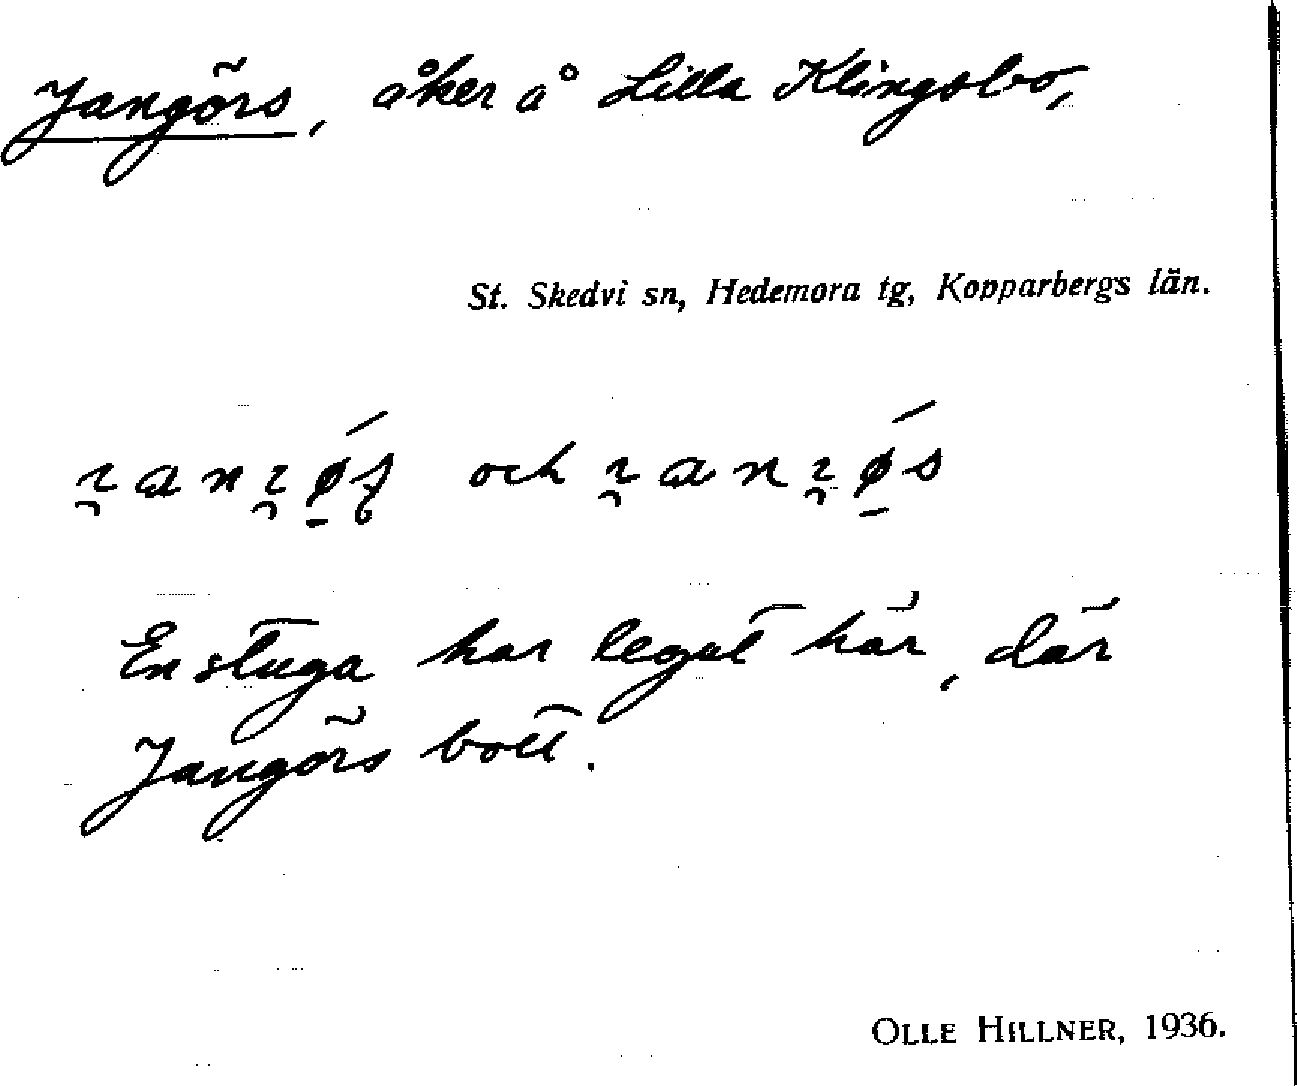 Jangörs, åker å Lilla Klingsbo,
St. Skedvi sn, Hedemora tg, Kopparbergs län.
och
En stuga har legat här, där
Jangörs bott.
OLLE HILLNER, 1936.